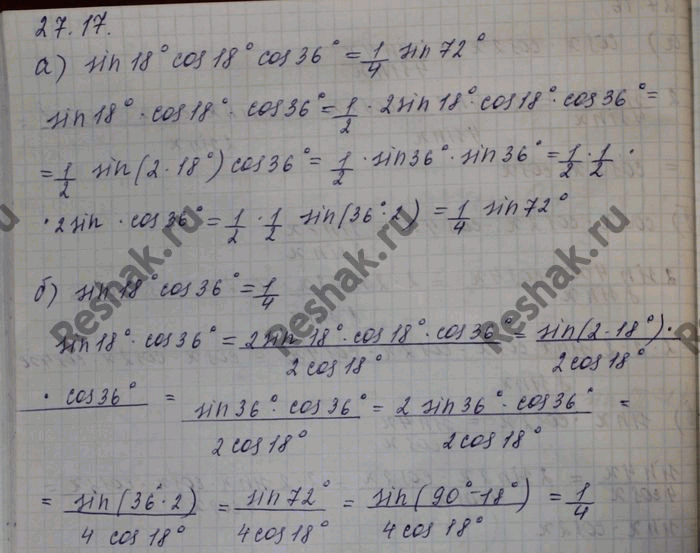 27.17.
а) sin 18° cos 18° cos 36° = 1/4 sin 72°
sin 18° · cos 18° · cos 36° = 1/2 · 2 sin 18° · cos 18° · cos 36° =
= 1/2 sin(2·18°) cos 36° = 1/2 · sin 36° · sin 36° = 1/2 · 1/2 ·
· 2 sin · cos 36° = 1/2 · 1/2 sin(36°·2) = 1/4 sin 72°
б) sin 18° cos 36° = 1/4
sin 18° · cos 36° = (2 sin 18° · cos 18° · cos 36°)/(2 cos 18°) = (sin(2·18°) ·)/(2 cos 18°)
· cos 36° = (sin 36° · cos 36°)/(2 cos 18°) = (2 sin 36° · cos 36°)/(2 cos 18°) =
= sin(36°·2)/(4 cos 18°) = sin 72°/(4 cos 18°) = sin(90°-18°)/(4 cos 18°) = 1/4
Reshak.ru
Reshak.ru
Reshak.ru